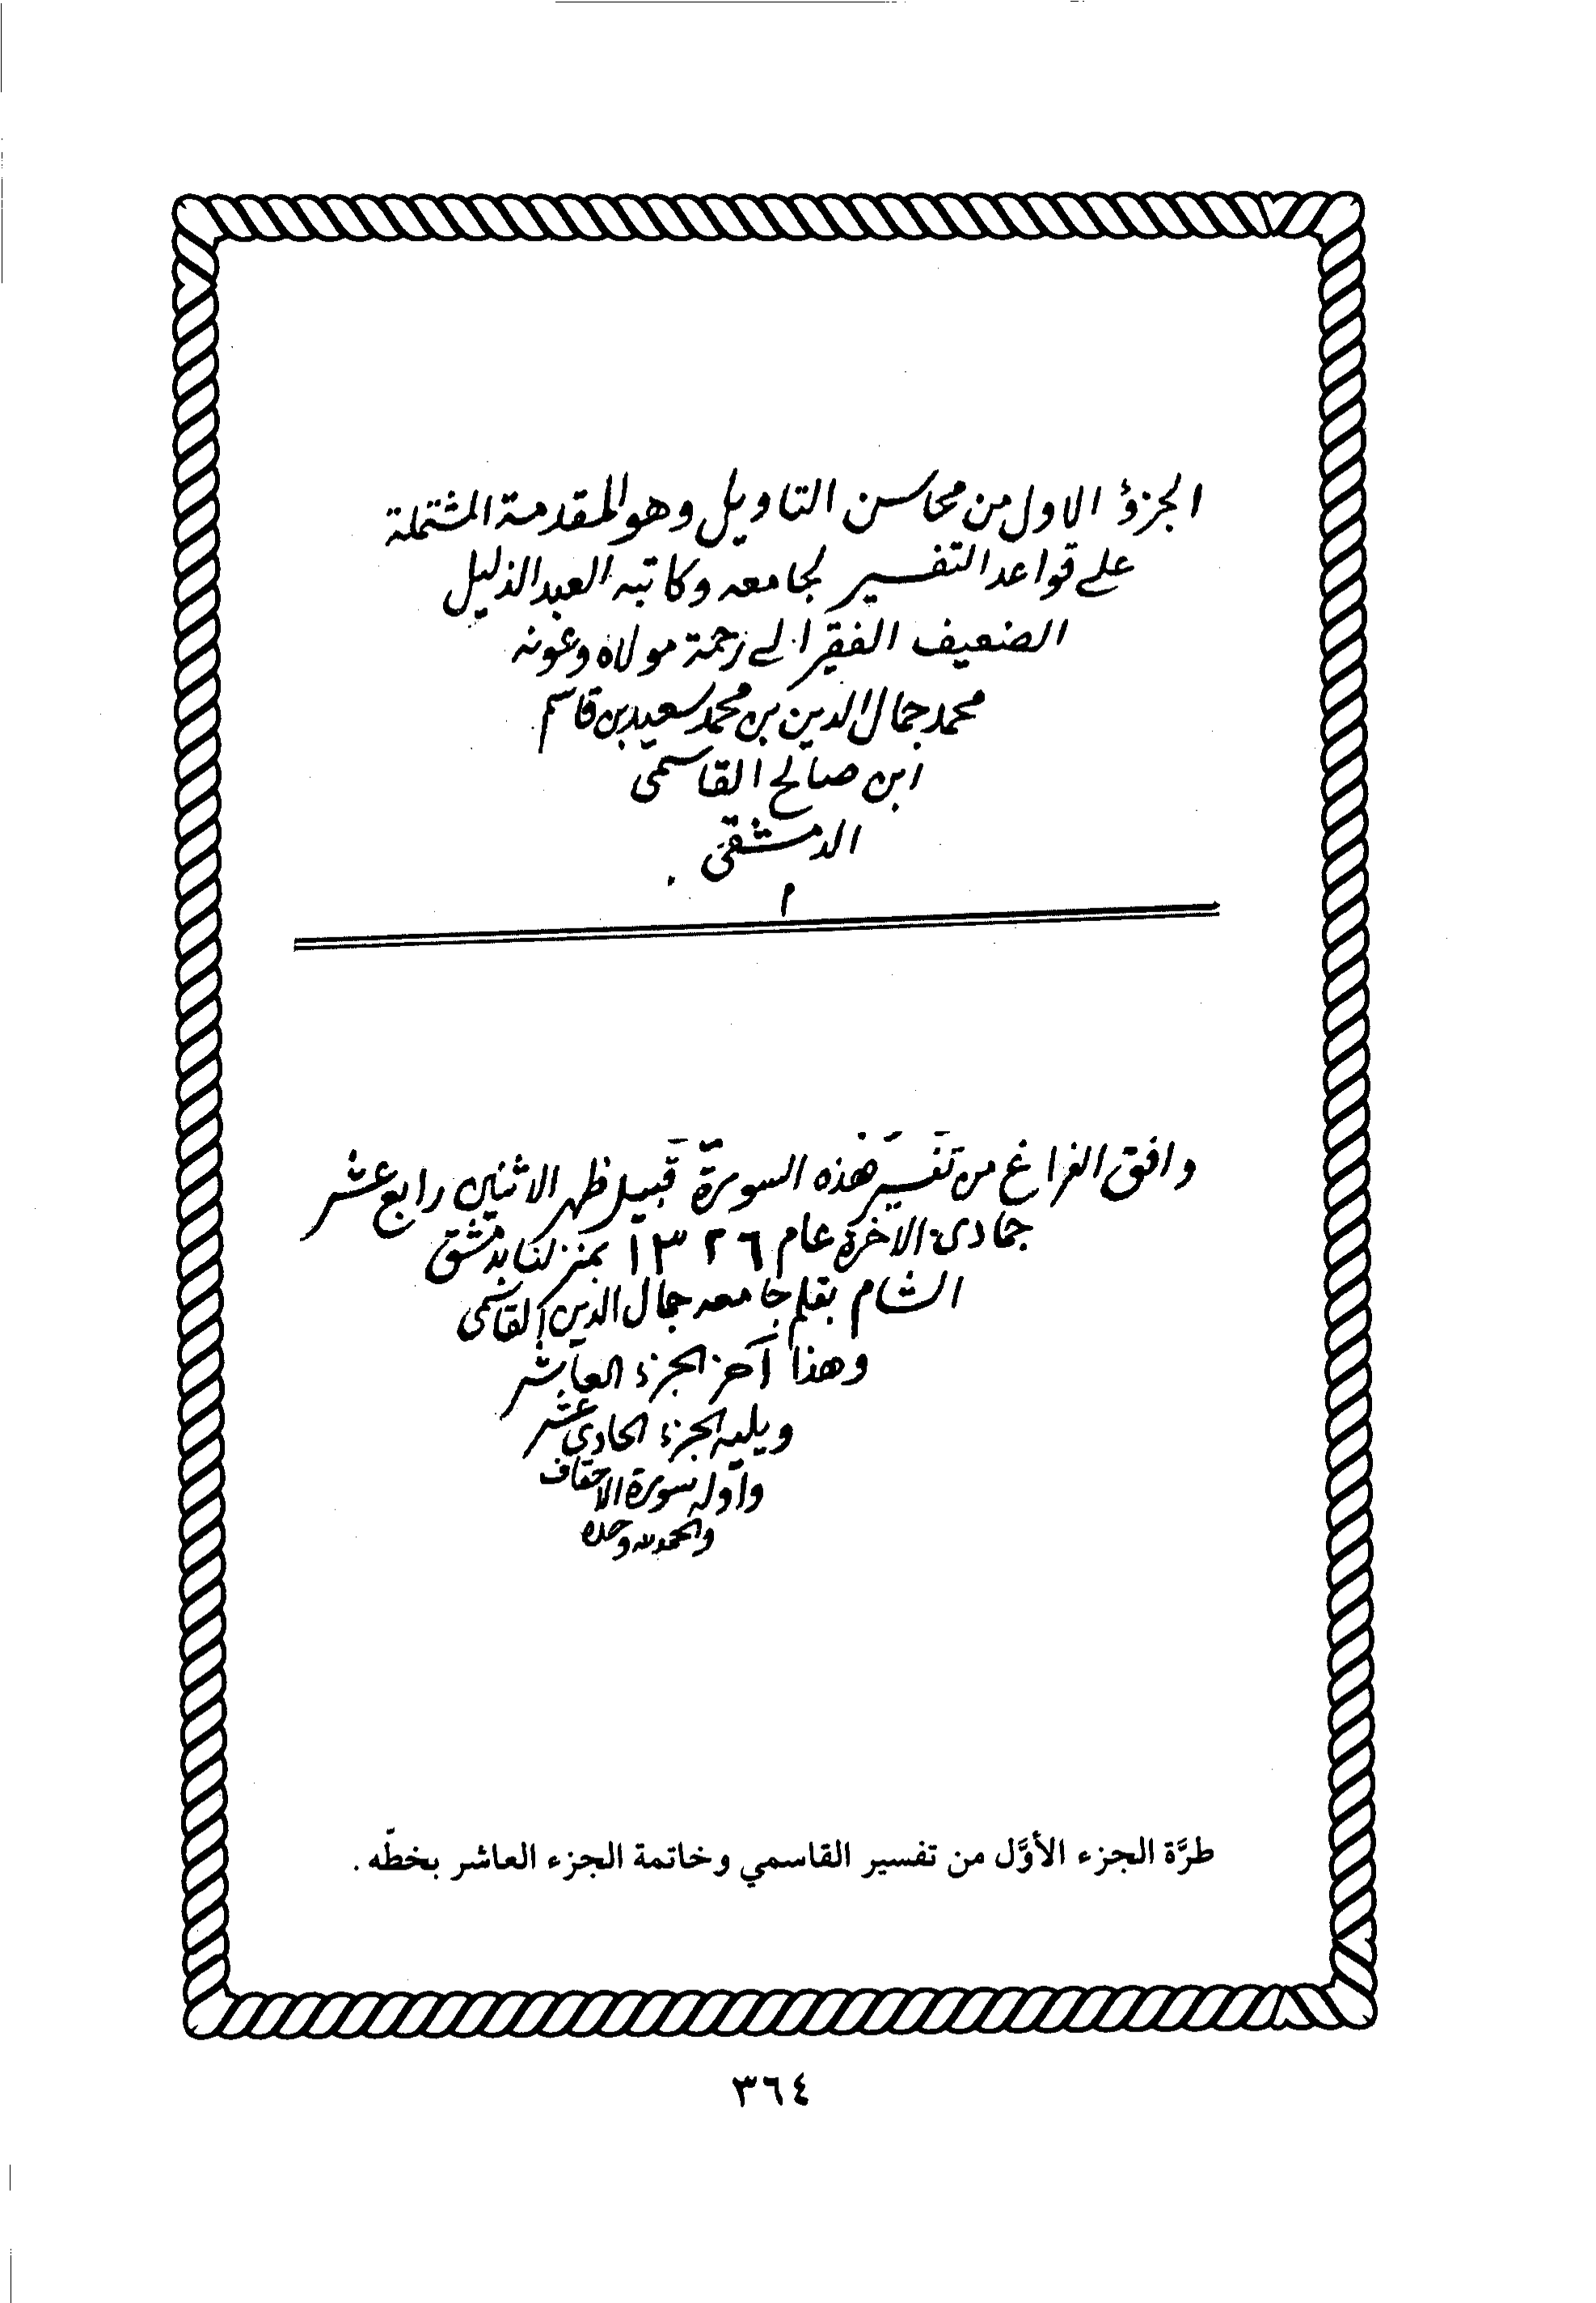 الجزؤ الاول من محاسن التاويل وهو المقدمة المشتملة
على قواعد التفسير لجامعه وكاتبه العبد الذليل
الضعيف الفقير الى رحمة مولاه وعونه
محمد جمال الدين بن محمد سعيد بن قاسم
ابن صالح القاسمى
الدمشقى
م
وافق الفراغ من تفسير هذه السورة قبيل ظهر الاثنين رابع عشر
جمادى الاخرة عام ١٣٢٦ بمنزلنا بدمشق
الشام بقلم جامعه جمال الدين القاسمى
وهذا آخر الجزء العاشر
ويليه الجزء الحادى عشر
واوله سورة الاحقاف
والحمد لله وحده
طرَّة الجزء الأوَّل من تفسير القاسمي وخاتمة الجزء العاشر بخطّه .
٣٦٤